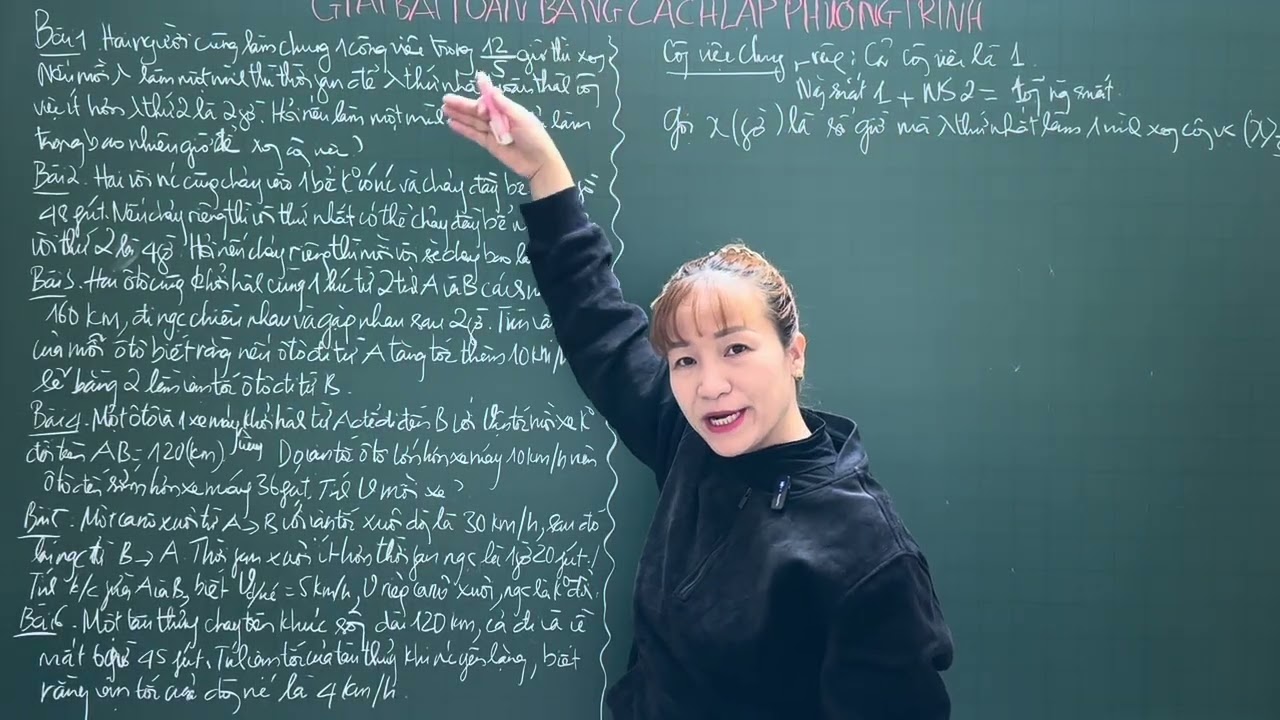 GIẢI BÀI TOÁN BẰNG CÁCH LẬP PHƯƠNG TRÌNH
Bài 1. Hai người cùng làm chung 1 công việc trong 12/5 giờ thì xong
Nếu mỗi λ làm một mình thì thời gian để λ thứ nhất hoàn thành
việc ít hơn λ thứ 2 là 2 giờ. Hỏi nếu làm một mình làm
trong bao nhiêu giờ để xong việc?
Bài 2. Hai vòi nc cùng chảy vào 1 bể k° có nc và chảy đầy bể
48 phút. Nếu chảy riêng thì vòi thứ nhất có thể chảy đầy bể
vòi thứ 2 là 4 giờ. Hỏi nếu chảy riêng thì mỗi vòi sẽ chảy bao
Bài 3. Hai ôtô cùng khởi hành cùng 1 lúc từ 2 tỉnh A và B cách
160 km, đi ngc chiều nhau và gặp nhau sau 2 giờ. Tính
của mỗi ôtô biết rằng nếu ôtô đi từ A tăng tốc thêm 10 km/h
sẽ bằng 2 lần vận tốc ôtô đi từ B.
Bài 4. Một ôtô và 1 xe máy khởi hành từ A để đi đến B với vận tốc mỗi xe k°
đổi trên AB = 120 (km) Do vận tốc ôtô lớn hơn xe máy 10 km/h nên
ôtô đến sớm hơn xe máy 36 phút. Tính V mỗi xe?
Bài 5. Một canô xuôi từ A → B với vận tốc xuôi dòng là 30 km/h, sau đó
lại ngc từ B → A. Thời gian xuôi ít hơn thời gian ngc là 1 giờ 20 phút.
Tính k/c giữa A và B, biết V = 5 km/h, V riêng canô xuôi, ngc là k° đổi.
Bài 6. Một tàu thủy chạy trên khúc sông dài 120 km, cả đi và về
mất 6 giờ 45 phút. Tính vận tốc của tàu thủy khi nc yên lặng, biết
rằng vận tốc của dòng nc là 4 km/h.
Công việc chung, riêng: Cả công việc là 1.
Năng suất 1 + NS 2 = tổng năng suất.
Gọi x (giờ) là số giờ mà λ thứ nhất làm 1 mình xong công việc (x >